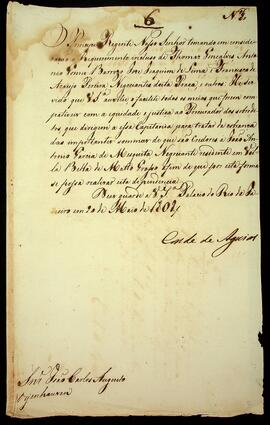 6
O Principe Regente Nosso Senhor tomando em conside
ração o Requerimento incluso de Thomaz Gonçalves, Anto
nio Gomes Barrozo, José Joaquim de Lima, Domingos de
Araujo Pereira Negociantes desta Praça, e outros: He ser
vido que VS.ª auxilie, e facilite todos os meios que forem com
pativeis com a equidade e justiça ao Procurador dos sobredi
tos que dirigem a essa Capitania para tratar da cobrança
das importantes sommas de que são Credores a João An
tonio Garcia de Mesquita Negociante residente em Vil
la Bella de Matto Grosso a fim de que por esta forma
se possa realizar esta dependencia.
Deos guarde a VS.ª Palacio do Rio de Ja
neiro em 20 de Maio de
Conde de Aguiar
Snr. João Carlos Augusto
Oyenhausen